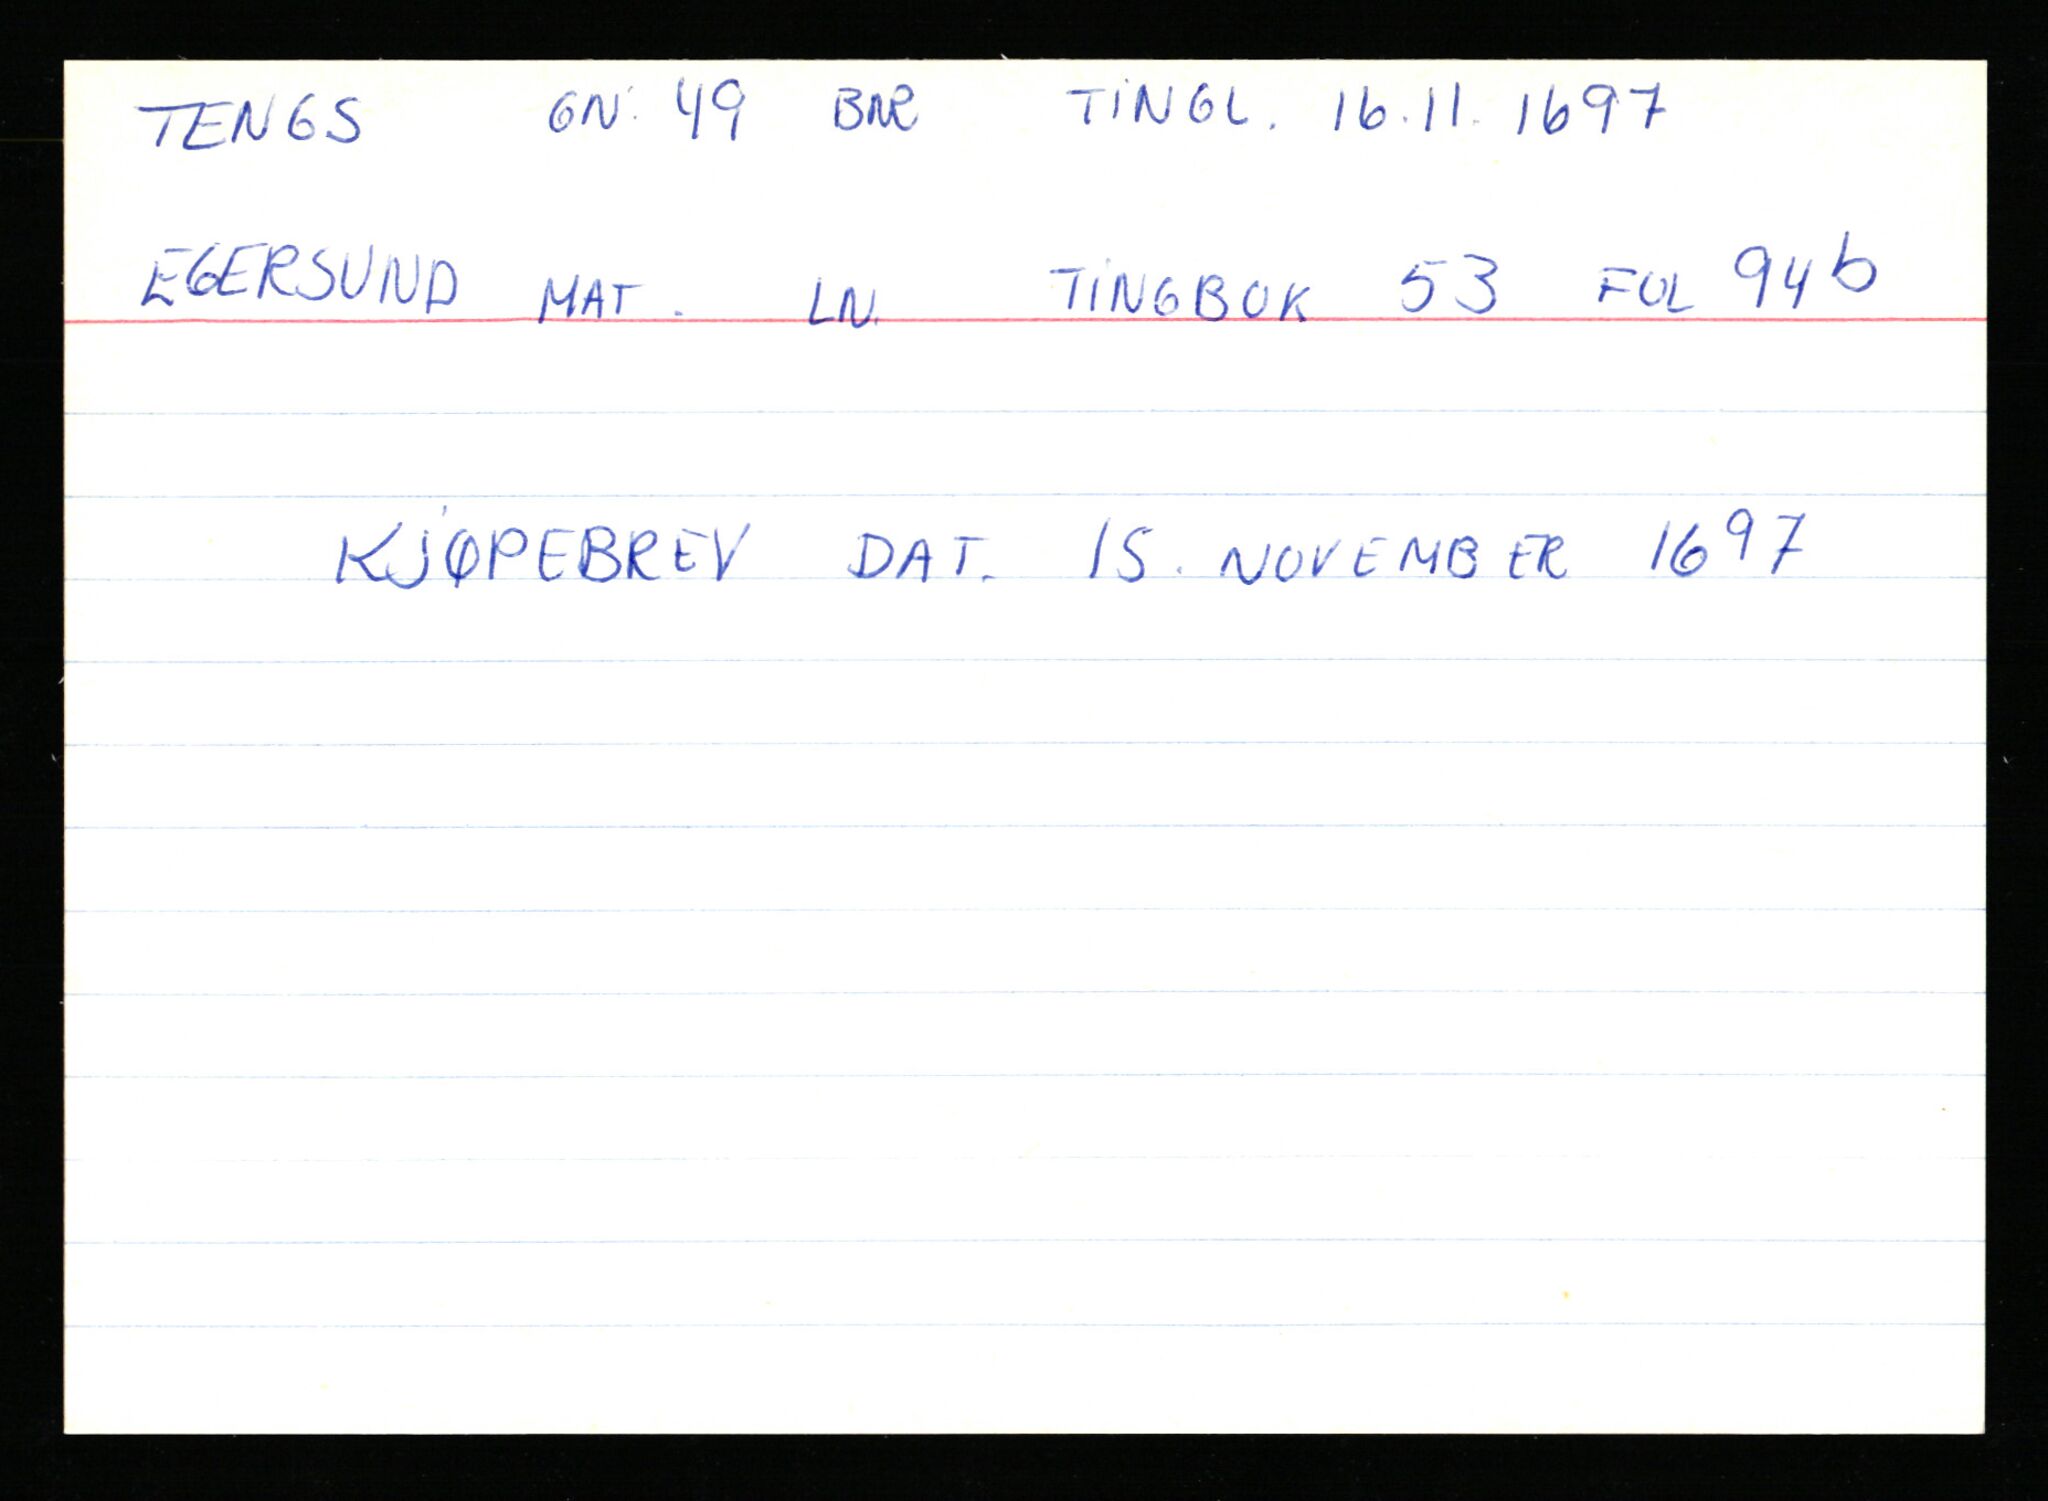 TENGS GN. 49 BNR TINGL. 16.11.1697
EGERSUND MAT. LN. TINGBOK 53 FOL 94b
KJØPEBREV DAT. 15. NOVEMBER 1697